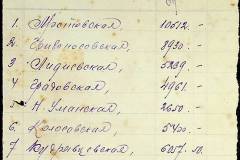 1. Мостовская, 10512.-
2. Привольновская, 8930.-
3. Лидиевская, 5239.-
4. Градовская, 4961.-
5. Н. Уманская, 2650.-
6. Колосовская, 5400.-
7. Кудрявцевская, 6057.50.